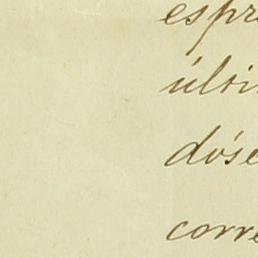 espre
últi
dóse
corre